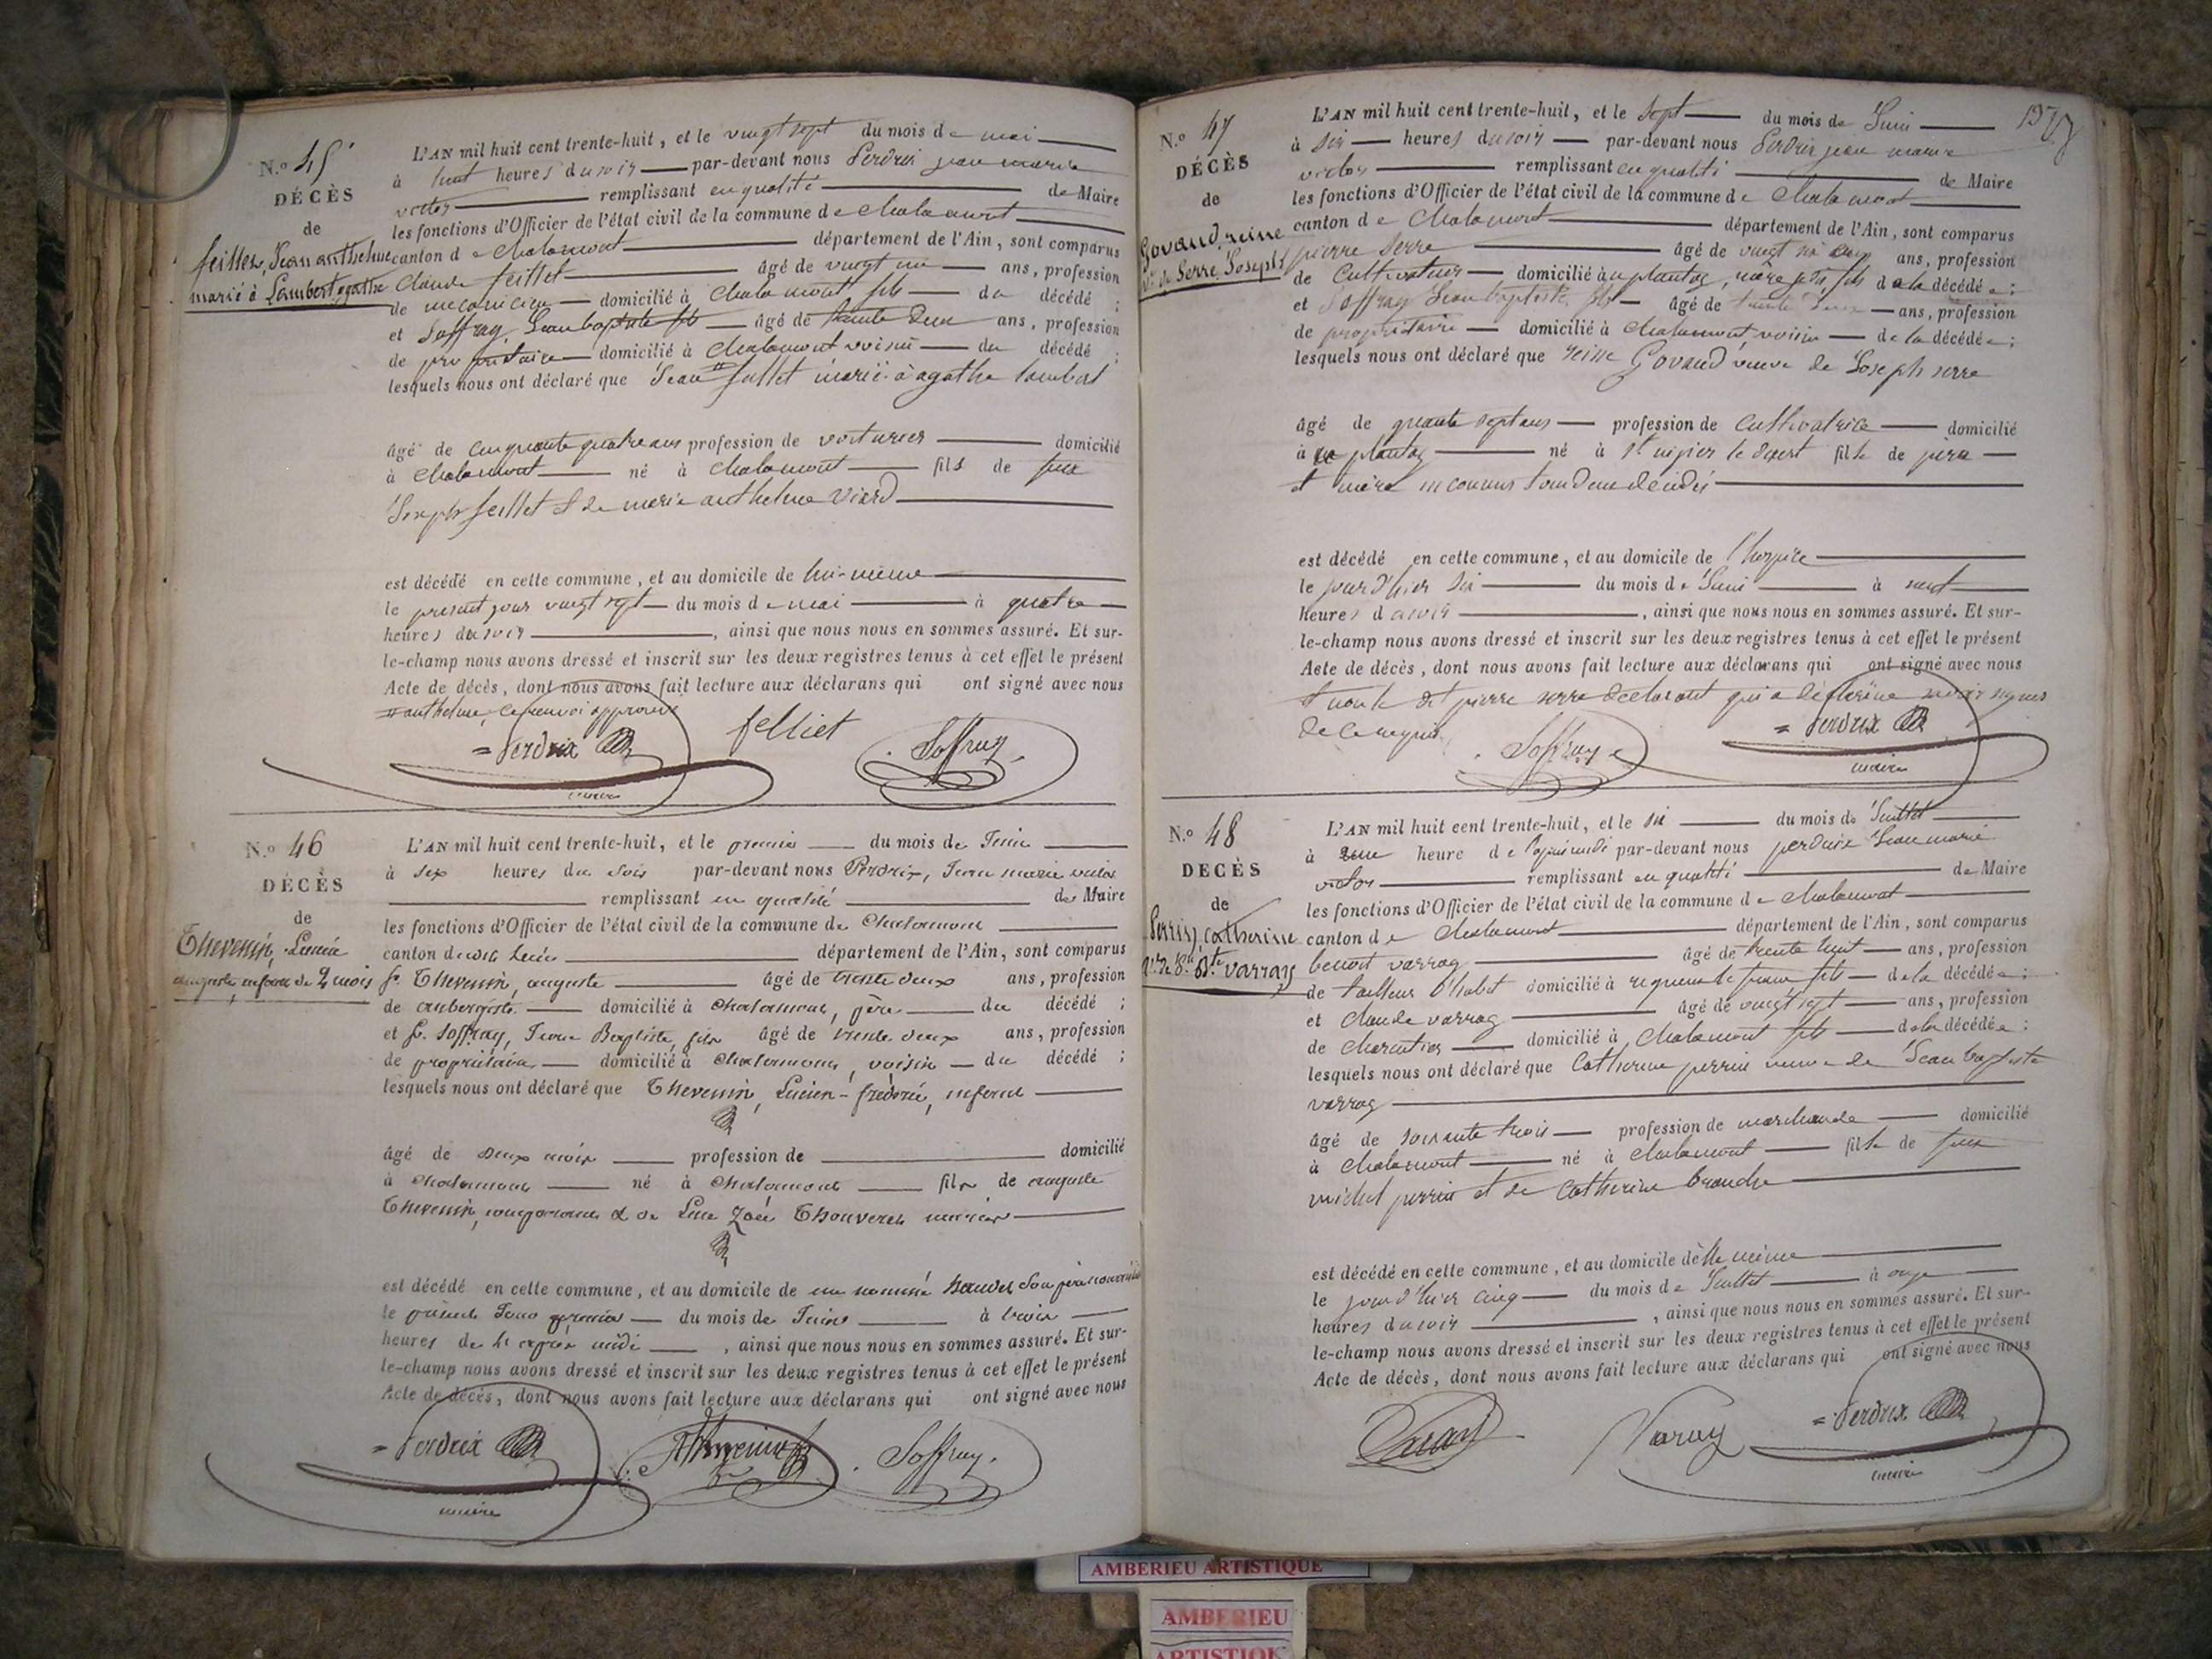 N.º 45
DÉCÈS
de
feillet, Jean anthelme
marié à Lambert agathe
L'AN mil huit cent trente-huit, et le vingt sept du mois de mai
à huit heures du soir par-devant nous Perdrix jean marie
victor remplissant en qualité de Maire
les fonctions d'Officier de l'état civil de la commune de Chalamont
canton de Chalamont département de l'Ain, sont comparus
Claude feillet âgé de vingt ans, profession
de mecanicien domicilié à Chalamont fils du décédé ;
et Soffray, Jean baptiste fils âgé de trente deux ans, profession
de propriétaire domicilié à Chalamont voisin du décédé ;
lesquels nous ont déclaré que Jean feillet marié à agathe Lambert
âgé de cinquante quatre ans profession de voiturier domicilié
à Chalamont né à Chalamont fils de feux
Joseph feillet et de marie anthelme Viard
est décédé en cette commune, et au domicile de lui-même
le présent jour vingt sept du mois de mai à quatre
heures du soir , ainsi que nous nous en sommes assuré. Et sur-
le-champ nous avons dressé et inscrit sur les deux registres tenus à cet effet le présent
Acte de décès, dont nous avons fait lecture aux déclarans qui ont signé avec nous
anthelme, ce renvoi approuvé
Perdrix felliet Soffray
maire
N.º 46
DÉCÈS
de
Thevenin, Lucien
auguste, enfant de 2 mois
L'AN mil huit cent trente-huit, et le premier du mois de Juin
à six heures du soir par-devant nous Perdrix, Jean marie victor
remplissant en qualité de Maire
les fonctions d'Officier de l'état civil de la commune de Chalamont
canton dudit Lieu département de l'Ain, sont comparus
Sr. Thevenin, auguste âgé de trente deux ans, profession
de aubergiste domicilié à Chalamont, père du décédé ;
et Sr. Soffray, Jean Baptiste, fils âgé de trente deux ans, profession
de propriétaire domicilié à Chalamont, voisin du décédé ;
lesquels nous ont déclaré que Thevenin, Lucien-frédéric, enfant
âgé de deux mois profession de domicilié
à Chalamont né à Chalamont fils de auguste
Thevenin, comparant et de Zoé Thouverel mariés
est décédé en cette commune, et au domicile de un nommé son père nourricier
le présent Jour premier du mois de Juin à trois
heures de l'après midi , ainsi que nous nous en sommes assuré. Et sur-
le-champ nous avons dressé et inscrit sur les deux registres tenus à cet effet le présent
Acte de décès, dont nous avons fait lecture aux déclarans qui ont signé avec nous
Perdrix Thevenin Soffray
maire
N.º 47
DÉCÈS
de
Govand, reine
Ve. de Serre, Joseph
L'AN mil huit cent trente-huit, et le sept du mois de Juin
à six heures du soir par-devant nous Perdrix jean marie
victor remplissant en qualité de Maire
les fonctions d'Officier de l'état civil de la commune de Chalamont
canton de Chalamont département de l'Ain, sont comparus
pierre Serre âgé de vingt ans, profession
de Cultivateur domicilié au plantay, fils de la décédée ;
et Soffray Jean baptiste fils âgé de trente deux ans, profession
de propriétaire domicilié à Chalamont voisin de la décédée ;
lesquels nous ont déclaré que reine Govand veuve de Joseph serre
âgé de quante sept ans profession de Cultivatrice domicilié
à plantay né à St nizier le desert fille de père
et mère inconnus tous deux décédés
est décédé en cette commune, et au domicile de l'hospice
le jour d'hier six du mois de Juin à neuf
heures du soir , ainsi que nous nous en sommes assuré. Et sur-
le-champ nous avons dressé et inscrit sur les deux registres tenus à cet effet le présent
Acte de décès, dont nous avons fait lecture aux déclarans qui ont signé avec nous
et non le dit pierre serre declarant qui a déclaré ne savoir signer
de ce requis
Soffray Perdrix
maire
N.º 48
DÉCÈS
de
Perrin, Catherine
Ve. de Jn. Bte. Varray
L'AN mil huit cent trente-huit, et le six du mois de Juillet
à une heure de l'après midi par-devant nous perdrix Jean marie
victor remplissant en qualité de Maire
les fonctions d'Officier de l'état civil de la commune de Chalamont
canton de Chalamont département de l'Ain, sont comparus
benoit varray âgé de trente huit ans, profession
de tailleur d'habit domicilié à fils de la décédée ;
et Claude varray âgé de vingt sept ans, profession
de Charcutier domicilié à Chalamont fils de la décédée ;
lesquels nous ont déclaré que Catherine perrin veuve de Jean baptiste
varray
âgé de soixante trois profession de marchande domicilié
à Chalamont né à Chalamont fille de feux
michel perrin et de Catherine
est décédé en cette commune, et au domicile d'elle même
le jour d'hier cinq du mois de Juillet à onze
heures du soir , ainsi que nous nous en sommes assuré. Et sur-
le-champ nous avons dressé et inscrit sur les deux registres tenus à cet effet le présent
Acte de décès, dont nous avons fait lecture aux déclarans qui ont signé avec nous
Varay Perdrix
maire
AMBERIEU ARTISTIQUE
AMBERIEU
ARTISTIQUE